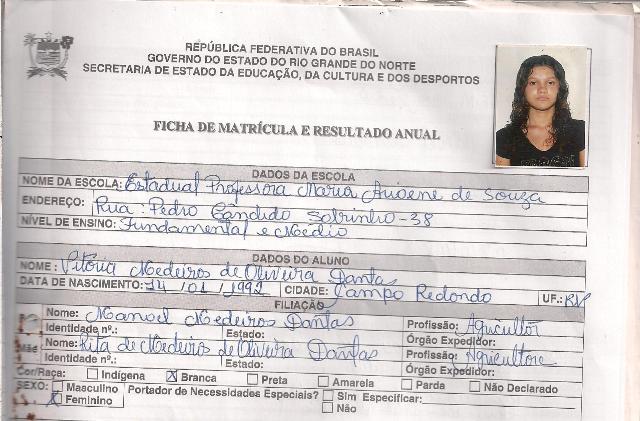 REPÚBLICA FEDERATIVA DO BRASIL
GOVERNO DO ESTADO DO RIO GRANDE DO NORTE
SECRETARIA DE ESTADO DA EDUCAÇÃO, DA CULTURA E DOS DESPORTOS
FICHA DE MATRÍCULA E RESULTADO ANUAL
DADOS DA ESCOLA
NOME DA ESCOLA: Estadual Professora Maria de Souza
ENDEREÇO: Rua: Pedro Candido Sobrinho-38
NÍVEL DE ENSINO: Fundamental e Médio
DADOS DO ALUNO
NOME: Vitória Medeiros de Oliveira Dantas
DATA DE NASCIMENTO: 14/01/1992 CIDADE: Campo Redondo UF.: RN
FILIAÇÃO
Nome: Manoel Medeiros Dantas Profissão: Agricultor
Identidade nº.: Estado: Órgão Expedidor:
Mãe Nome: Rita de Medeiros de Oliveira Dantas Profissão: Agricultora
Identidade nº.: Estado: Órgão Expedidor:
Cor/Raça: Indígena X Branca Preta Amarela Parda Não Declarado
SEXO: Masculino Portador de Necessidades Especiais? Sim Especificar:
X Feminino Não